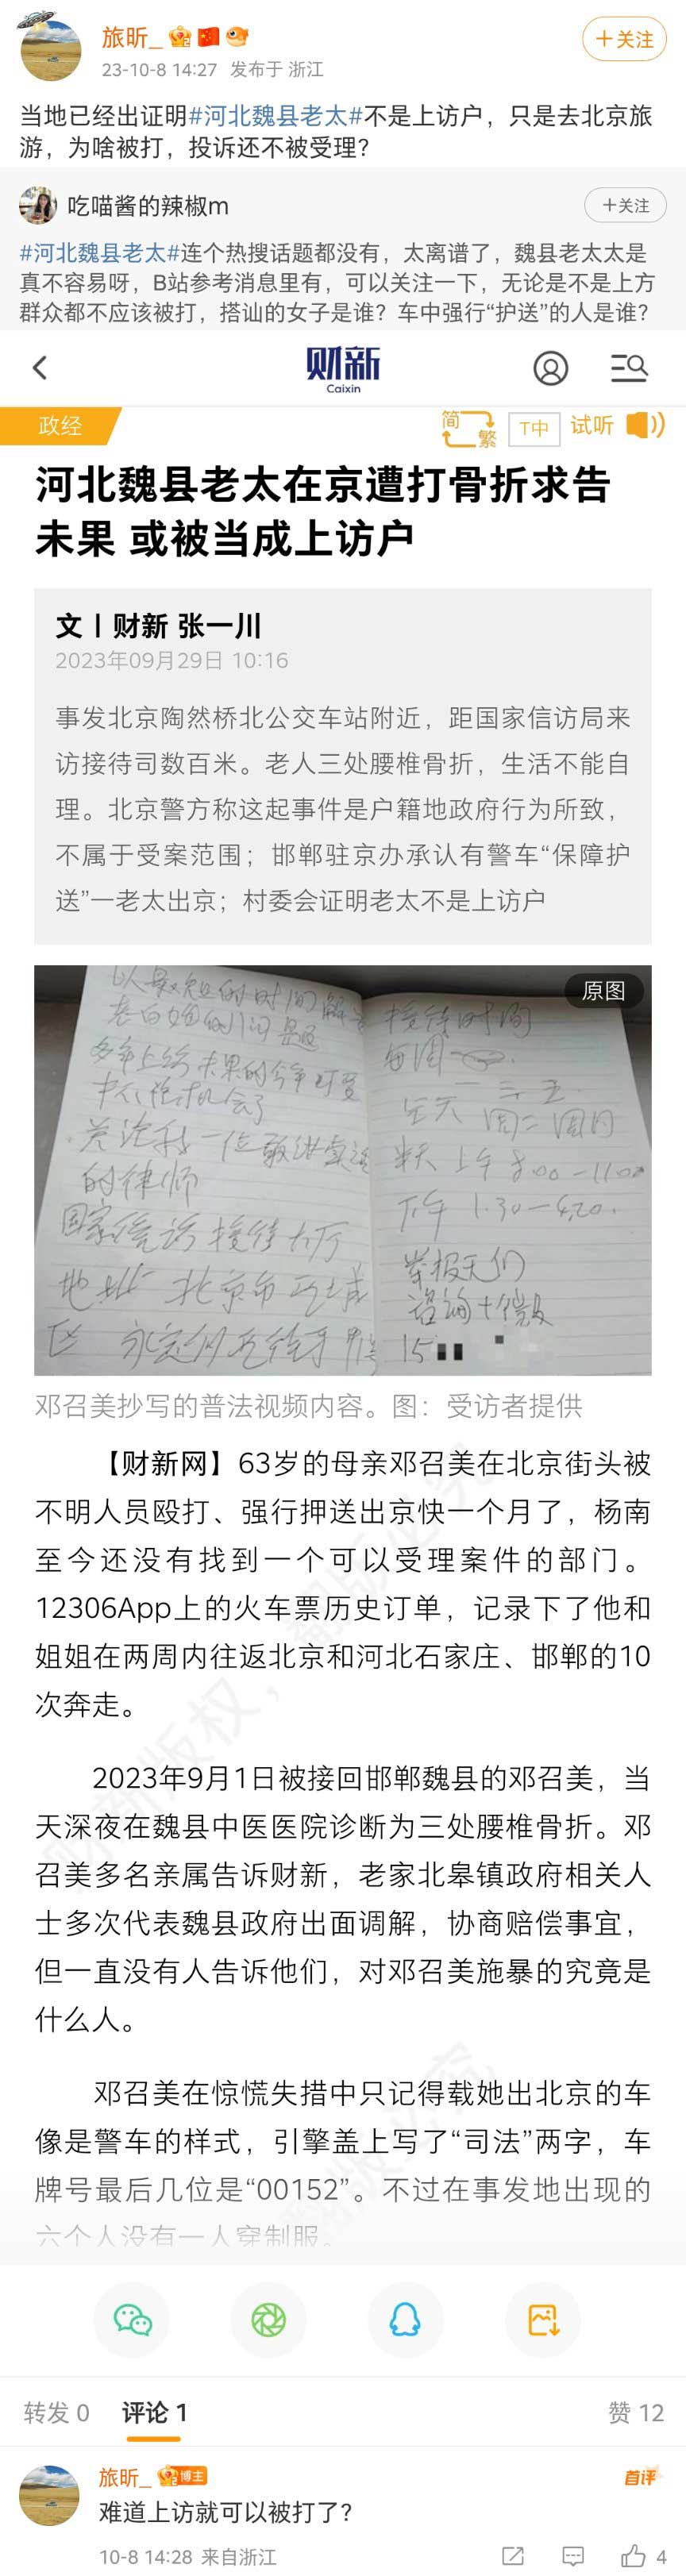 旅昕_
＋关注
23-10-8 14:27 发布于 浙江
当地已经出证明#河北魏县老太#不是上访户，只是去北京旅
游，为啥被打，投诉还不被受理？
吃喵酱的辣椒m
＋关注
#河北魏县老太#连个热搜话题都没有，太离谱了，魏县老太太是
真不容易呀，B站参考消息里有，可以关注一下，无论是不是上方
群众都不应该被打，搭讪的女子是谁？车中强行“护送”的人是谁？
财新
Caixin
政经
简 繁 T中 试听
河北魏县老太在京遭打骨折求告
未果 或被当成上访户
文丨财新 张一川
2023年09月29日 10:16
事发北京陶然桥北公交车站附近，距国家信访局来
访接待司数百米。老人三处腰椎骨折，生活不能自
理。北京警方称这起事件是户籍地政府行为所致，
不属于受案范围；邯郸驻京办承认有警车“保障护
送”一老太出京；村委会证明老太不是上访户
原图
以最短的时间解
老百姓的问题
多年上访未果的今年可要
抓住机会了
关注我一位敢讲真话
的律师
国家信访接待大厅
地址 北京市西城
区 永定门西街
接待时间
每周
一 三 五
全天 周二 周四
半天 上午 8:00-11:00
下午 1.30-4.20.
举报天们
咨询+微
15
邓召美抄写的普法视频内容。图：受访者提供
【财新网】63岁的母亲邓召美在北京街头被
不明人员殴打、强行押送出京快一个月了，杨南
至今还没有找到一个可以受理案件的部门。
12306App上的火车票历史订单，记录下了他和
姐姐在两周内往返北京和河北石家庄、邯郸的10
次奔走。
2023年9月1日被接回邯郸魏县的邓召美，当
天深夜在魏县中医医院诊断为三处腰椎骨折。邓
召美多名亲属告诉财新，老家北皋镇政府相关人
士多次代表魏县政府出面调解，协商赔偿事宜，
但一直没有人告诉他们，对邓召美施暴的究竟是
什么人。
邓召美在惊慌失措中只记得载她出北京的车
像是警车的样式，引擎盖上写了“司法”两字，车
牌号最后几位是“00152”。不过在事发地出现的
六个人没有一人穿制服。
财新版权，翻版必究
翻版必究
转发 0 评论 1 赞 12
旅昕_ 博主
首评
难道上访就可以被打了？
10-8 14:28 来自浙江
4